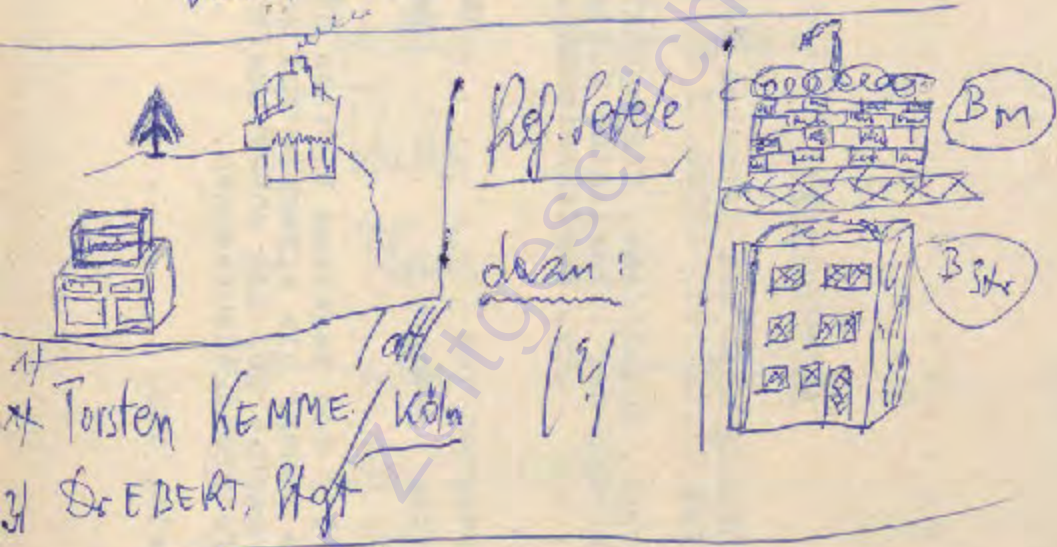 Ref. Settele
dazu:
(?)
BM
BStr
1/
Torsten KEMME / Köln
3/ Dr EBERT, Stgt
Zeitgeschich